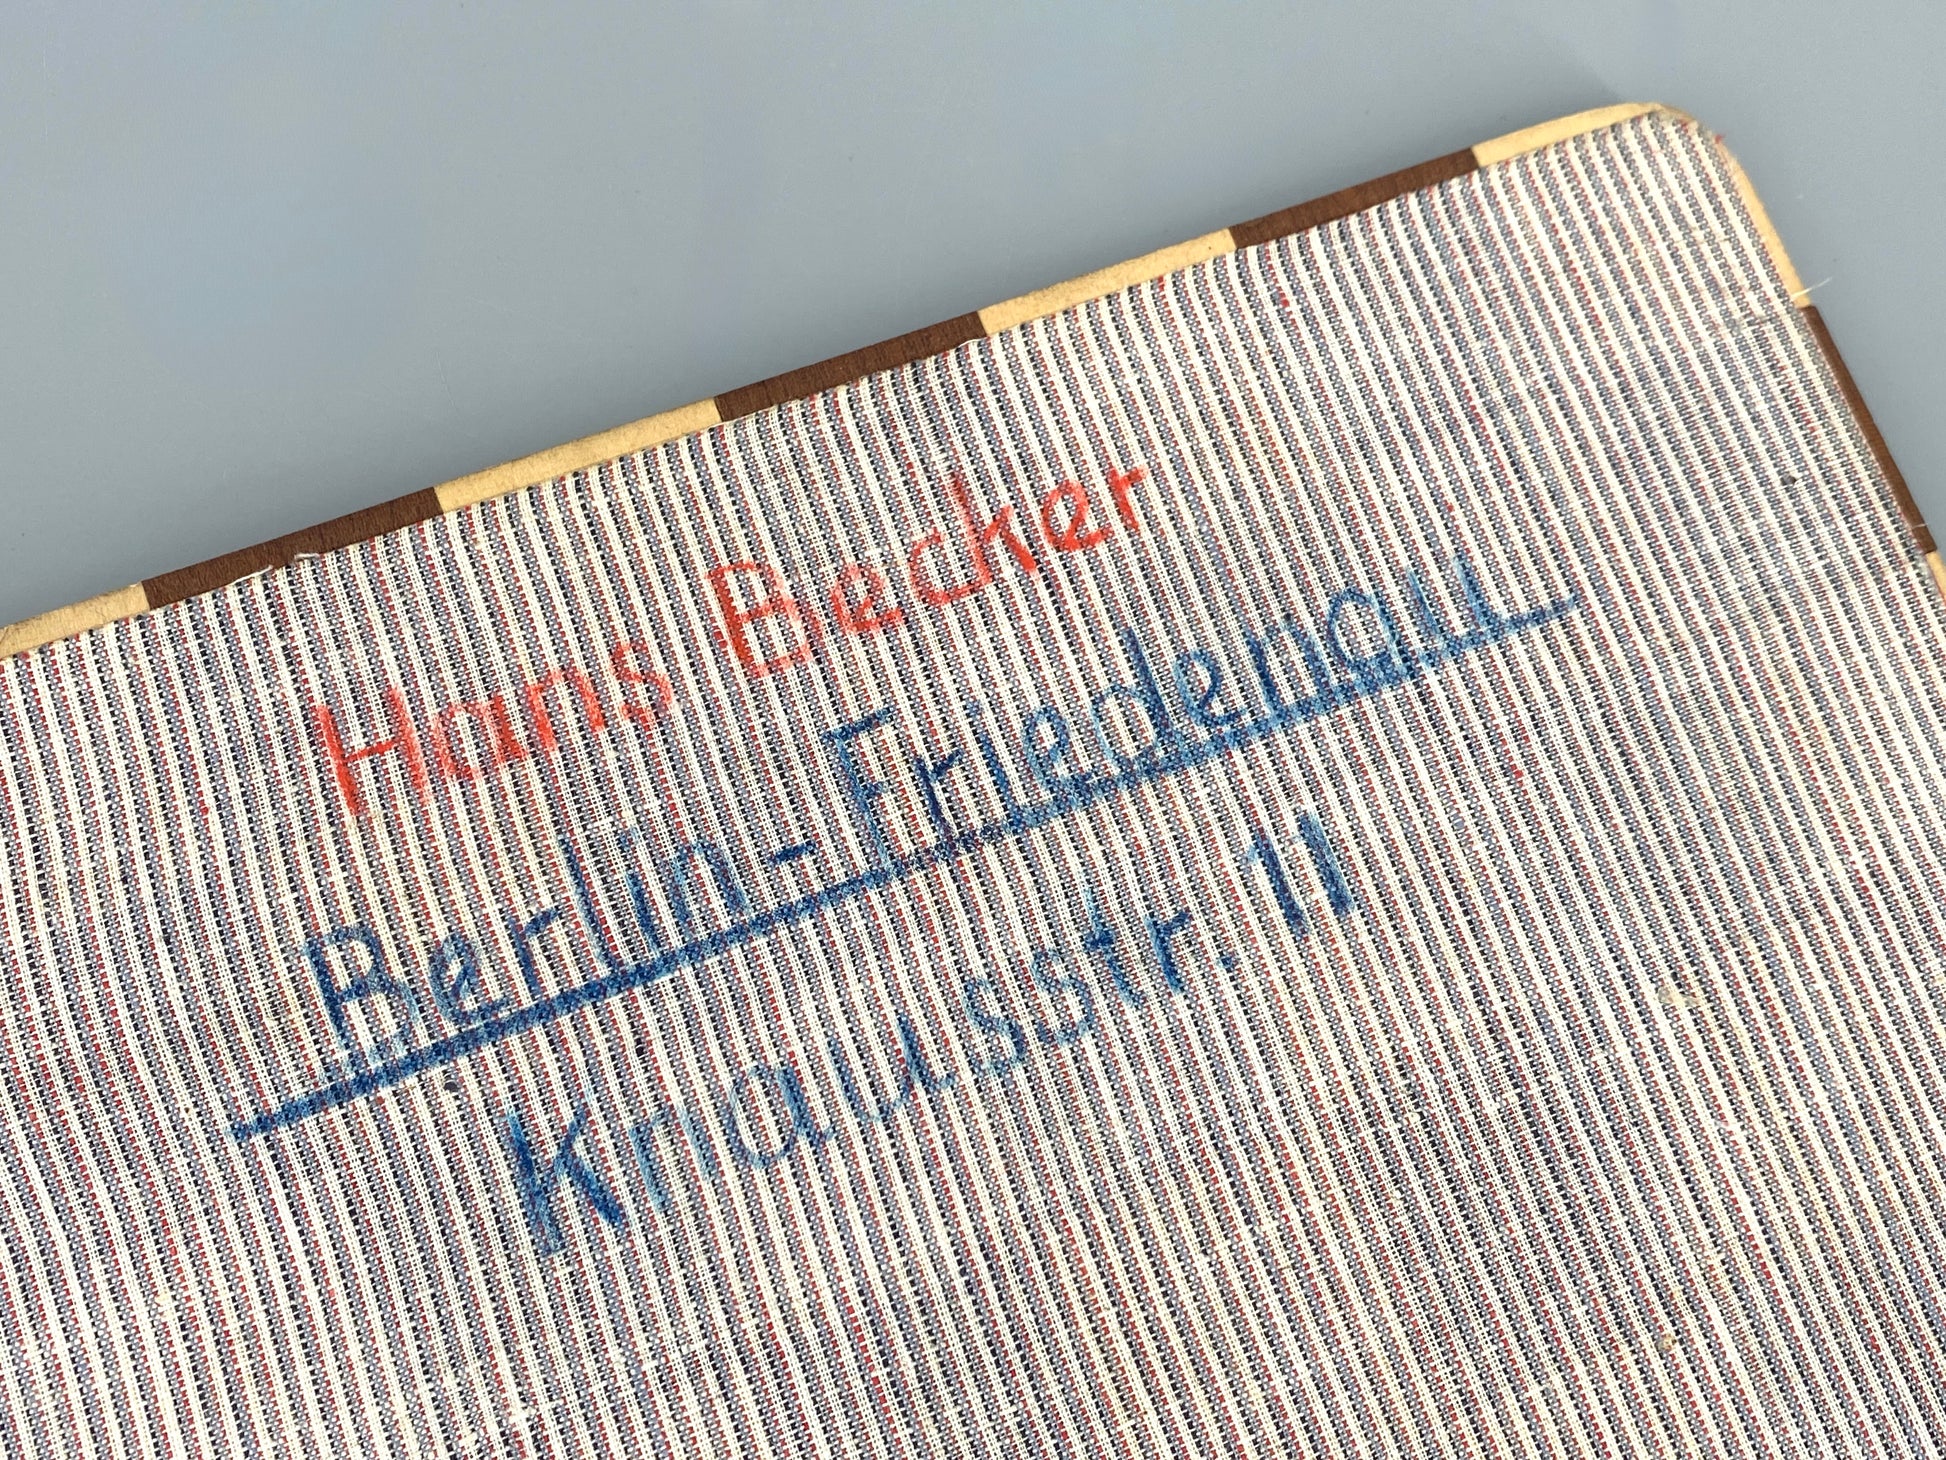 Hans Becker
Berlin-Friedenau
Knausstr. 11